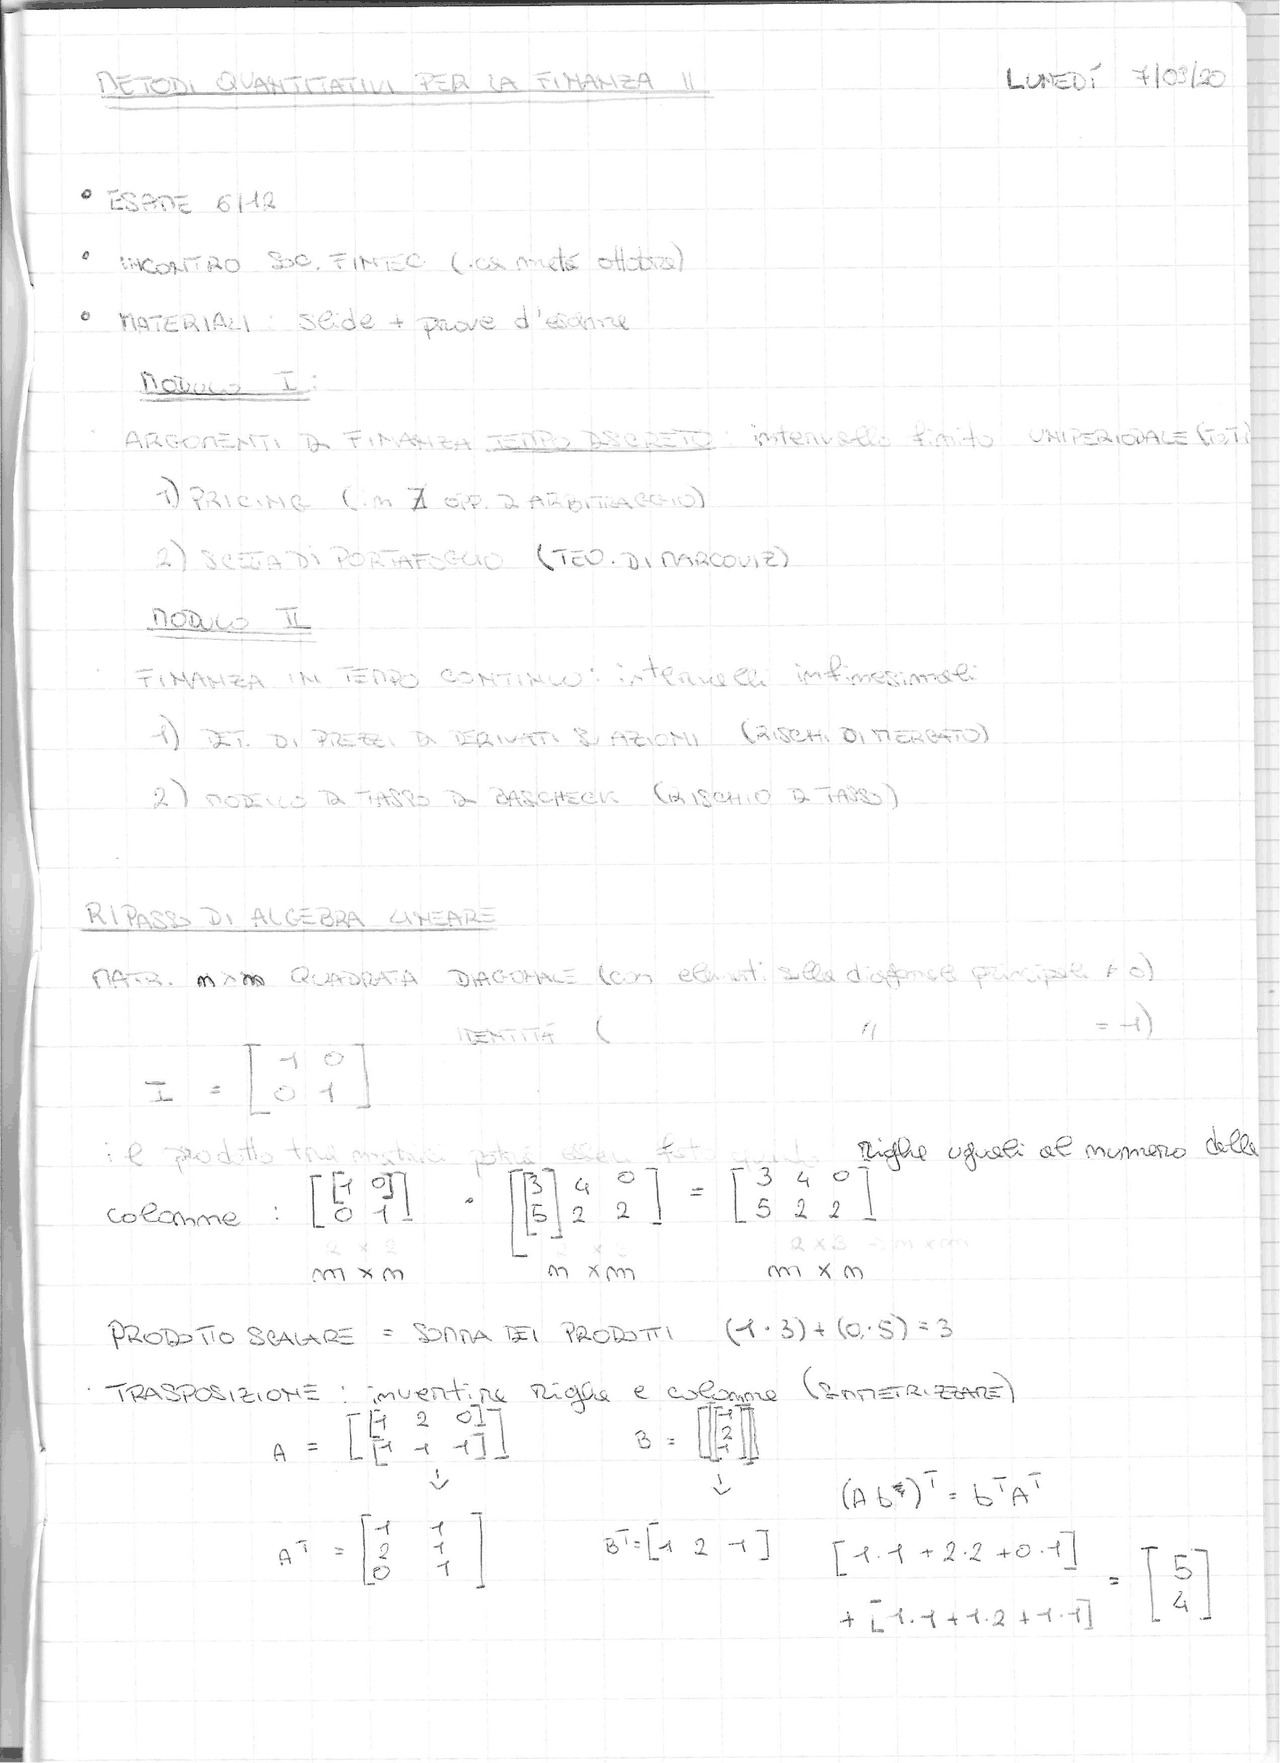 METODI QUANTITATIVI PER LA FINANZA II
LUNEDÍ 7/09/20
• ESAME 6/12
• INCONTRO SOC. FINTEC ( metá ottobre)
• MATERIALI: slide + prove d'esame
MODULO I:
ARGOMENTI DI FINANZA TEMPO DISCRETO: intervallo finito UNIPERIODALE
1) PRICING (in ∄ OPP. DI ARBITRAGGIO)
2) SCELTA DI PORTAFOGLIO (TEO. DI MARCOVIZ)
MODULO II
FINANZA IN TEMPO CONTINUO: intervalli infinesimali
1) DET. DI PREZZI DI DERIVATI SU AZIONI (RISCHI DI MERCATO)
2) MODELLO DI TASSO DI BASCHECK (RISCHIO DI TASSO)
RIPASSO DI ALGEBRA LINEARE
MATR. m×m QUADRATA DIAGONALE (con elementi sulla diagonale principale ≠ 0)
IDENTITÁ ( " = 1)
I = [1 0
0 1]
il prodotto tra matrici potrá essere fatto quando righe uguali al numero delle
colonne : [[1 0] 0 1] · [[3 5] 4 0 2 2] = [3 4 0
5 2 2]
2 × 2
2 × 3
m × n
n × m
m × n
PRODOTTO SCALARE = SOMMA DEI PRODOTTI (1·3)+(0·5)=3
· TRASPOSIZIONE : invertire righe e colonne (SIMMETRIZZARE)
A = [[1 2 0]
[1 1 1]]
B = [[1
2
1]]
↓ ↓
(Ab)ᵀ = bᵀAᵀ
Aᵀ = [1 1
2 1
0 1]
Bᵀ=[1 2 1]
[1·1 + 2·2 + 0·1]
+ [1·1 + 1·2 + 1·1]
= [5
4]